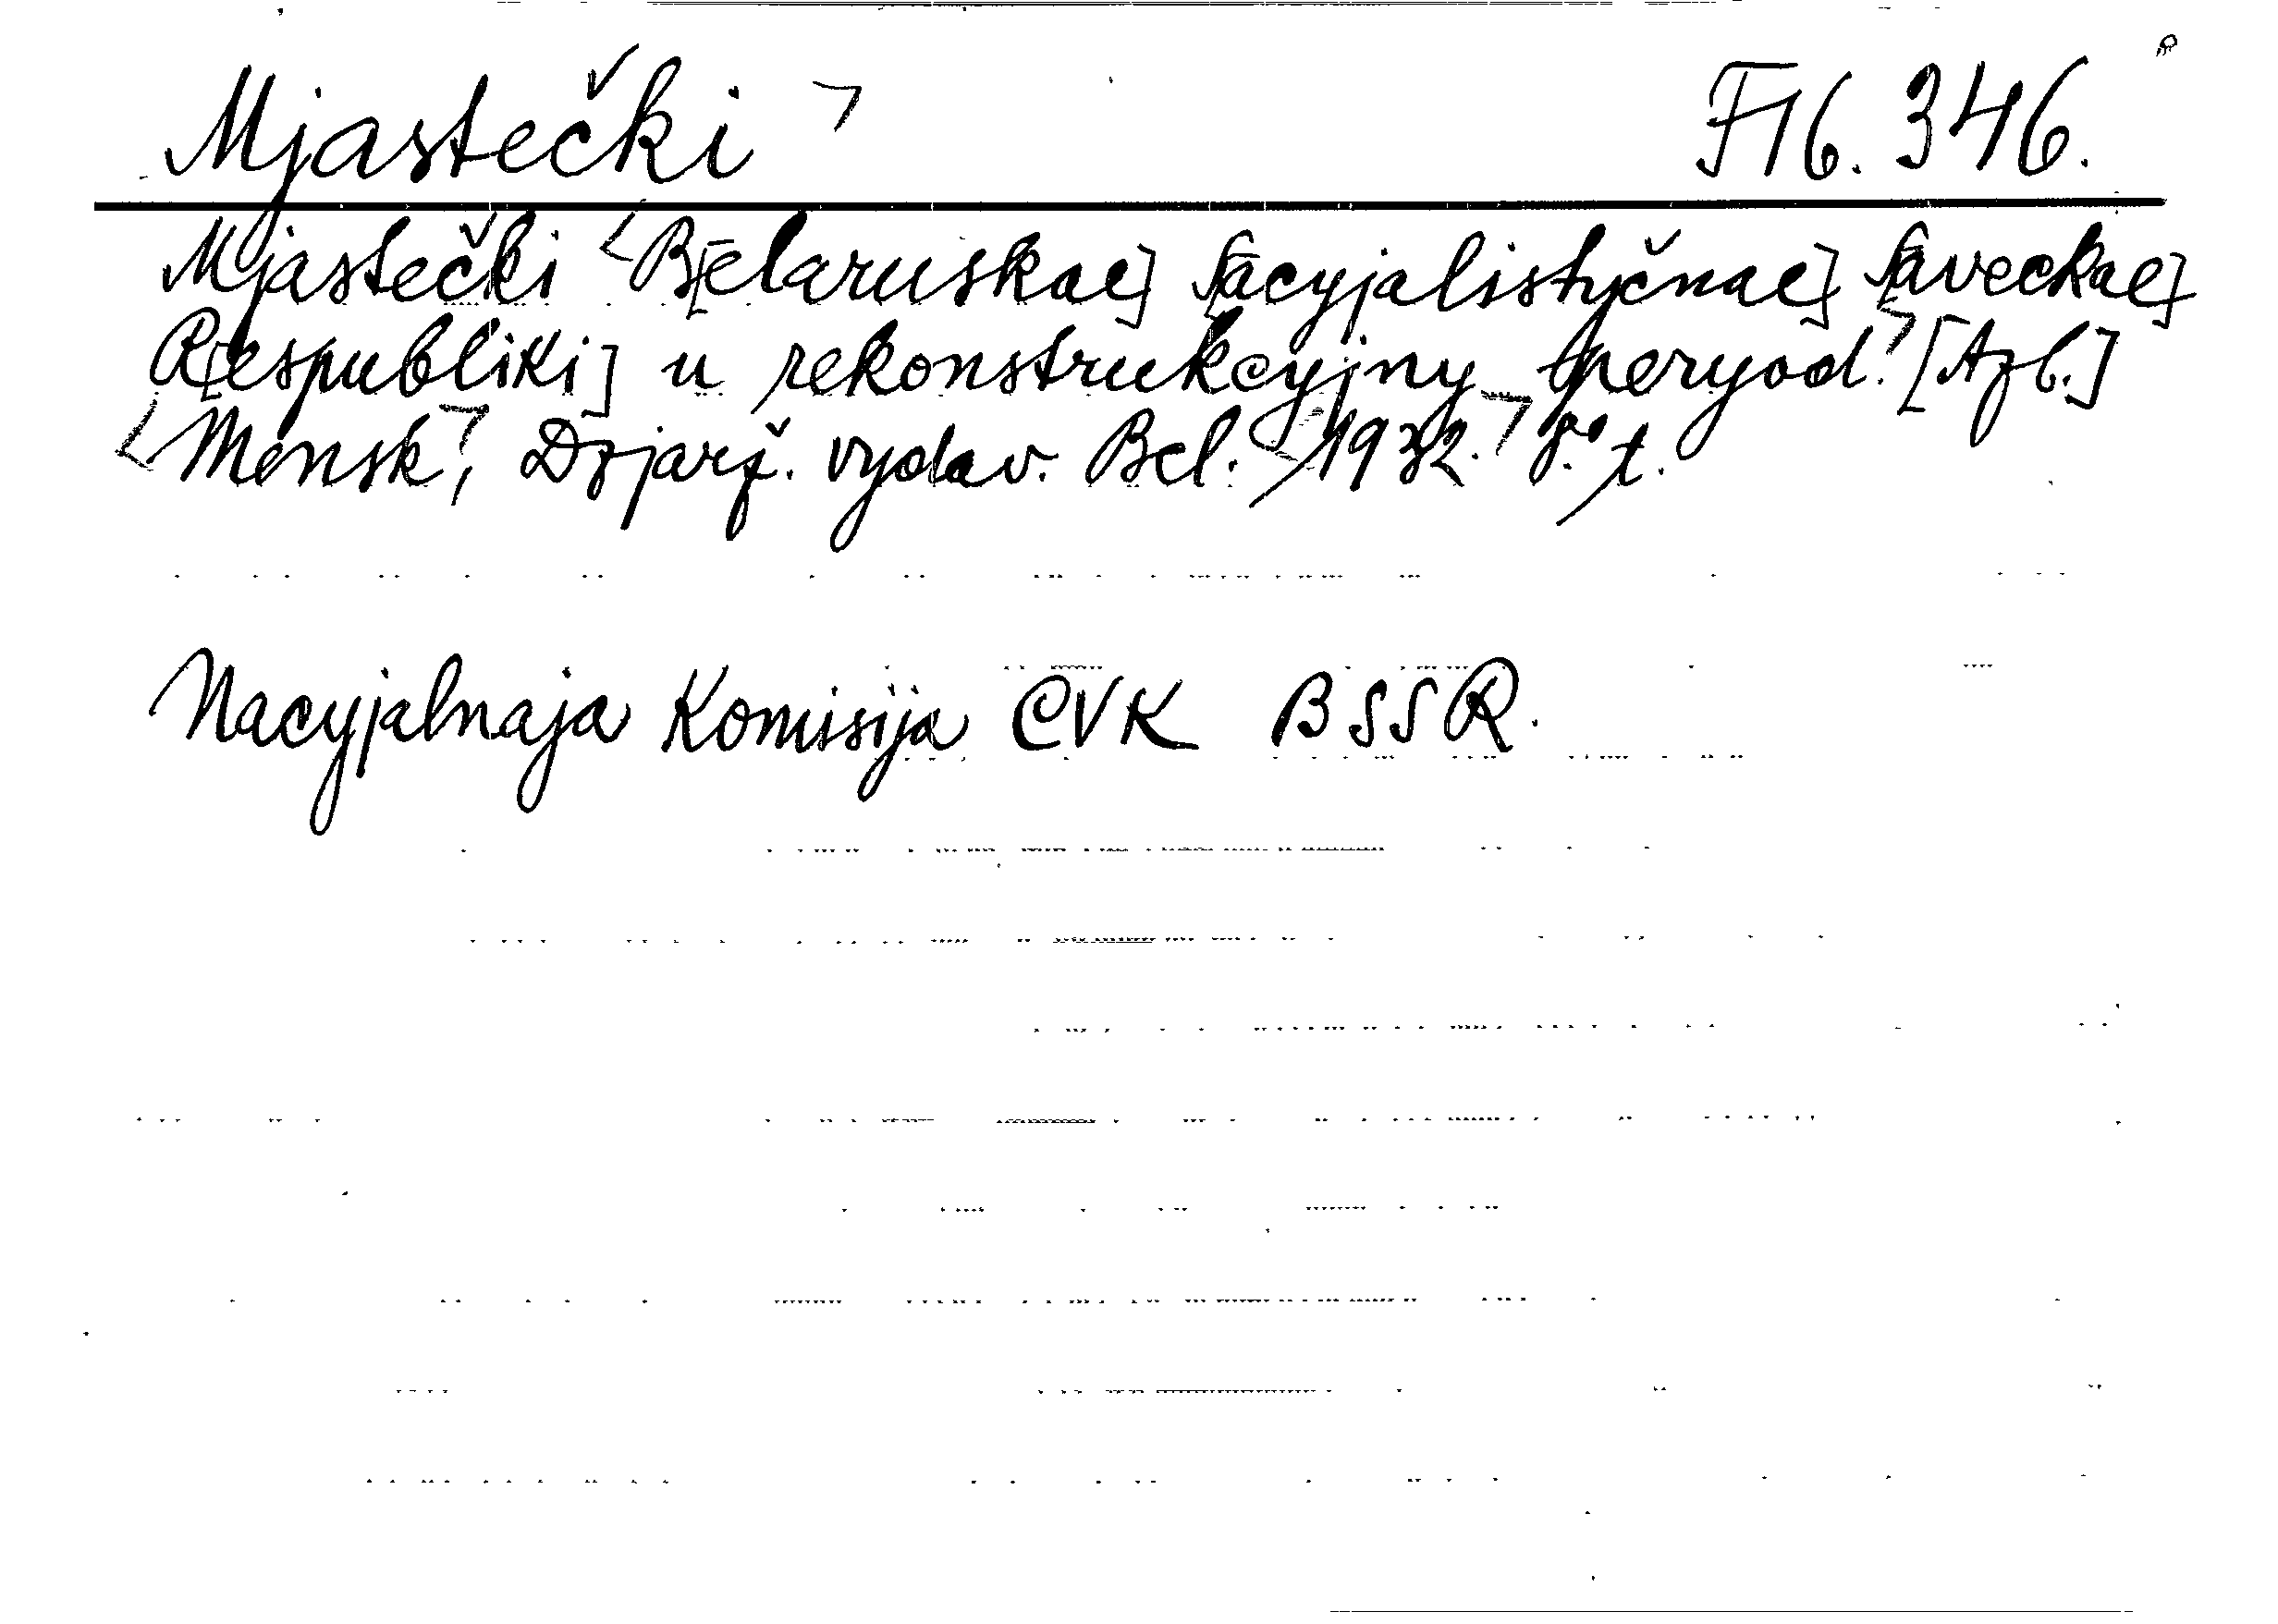 Mjastečki F16.346.
Mjastečki B[elaruskae] S[acyjalistyčnae] S[aveckae]
R[espubliki] u rekonstrukcyjny peryod. [Azb.]
Mensk, Dzjarž. vydav. Bel. 1932. 8.° t.
Nacyjalnaja Komisija CVK BSSR.